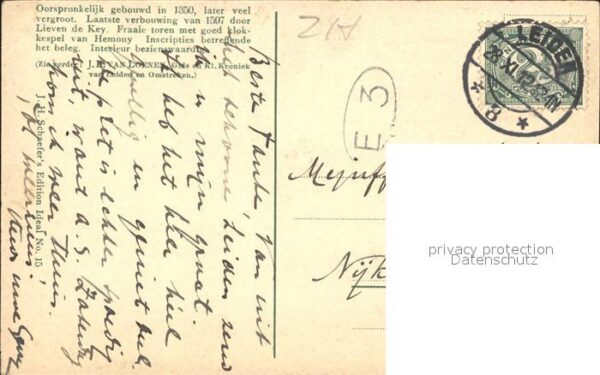 Oorspronkelijk gebouwd in 1350, later veel
vergroot. Laatste verbouwing van 1597 door
Lieven de Key. Fraaie toren met goed klok-
kespel van Hemony Inscripties betreffende
het beleg. Interieur bezienswaardig.
(Zie verder: J. E. VAN LOENEN, Gids en Kl. Kroniek
van Leiden en Omstreken.)
J. H. Schaefer's Edition Ideal No. 15
Beste Tante, Van uit
het schoone Leiden zend
ik u mijn groet.
Ik heb het hier heel
en geniet
pret is echter spoedig
uit, want a.s. Zaterdag
kom ik weer thuis.
E 3
LEIDEN
28 XI
8
Mejuff
Nijk
privacy protection
Datenschutz